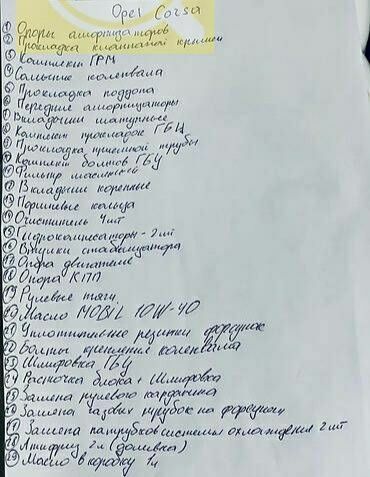 Opel Corsa
1 Опоры амортизаторов
2 Прокладка клапанной крышки
3 Комплект ГРМ
4 Сальник коленвала
5 Прокладка поддона
6 Передние амортизаторы
7 Вкладыши шатунные
8 Комплект прокладок ГБЦ
9 Прокладка приемной трубы
10 Комплект болтов ГБЦ
11 Фильтр масляный
12 Вкладыши коренные
13 Поршневые кольца
14 Очиститель 4шт
15 Гидрокомпесаторы - 2шт
16 Втулки стабилизатора
17 Опора двигателе
18 Опора КПП
19 Рулевые тяги
20 Масло MOBIL 10W-40
21 Уплотнительные резинки форсунок
22 Болты крепления коленвала
23 Шлифовка ГБЦ
24 Расточка блока + Шлифовка
25 Замена рулевого карданчика
26 Замена газовых трубок на форсунки
27 Замена патрубков системы охлаждения 2шт
28 Антифриз 2л (доливка)
29 Масло в коробку 1л